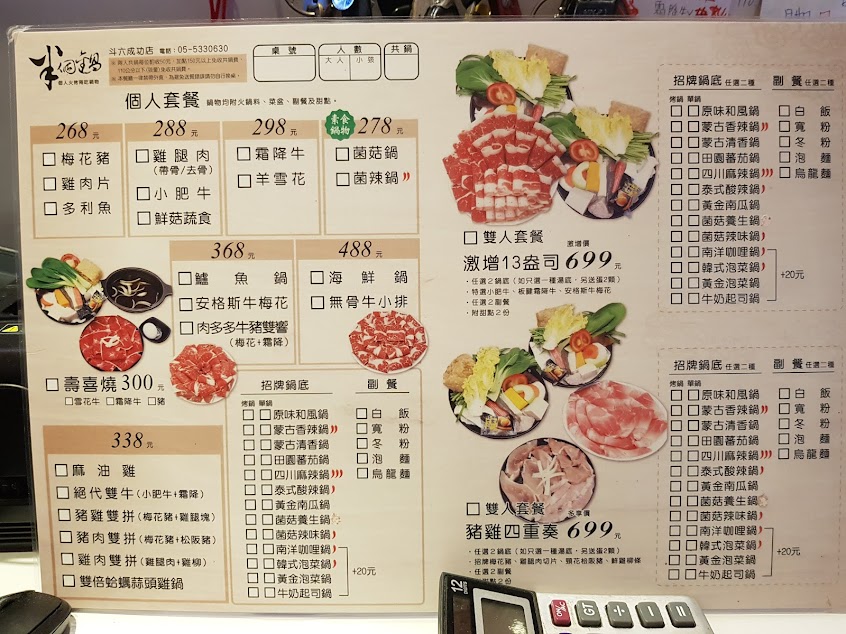 半個鍋
個人火烤兩吃鍋物
斗六成功店 電話:05-5330630
桌號
人數
大人 小孩
共鍋
個人套餐 鍋物均附火鍋料、菜盤、副餐及甜點。
268元
梅花豬
雞肉片
多利魚
288元
雞腿肉
(帶骨/去骨)
小肥牛
鮮菇蔬食
298元
霜降牛
羊雪花
素食鍋物
278元
菌菇鍋
菌辣鍋
368元
鱸魚鍋
安格斯牛梅花
肉多多牛豬雙響
(梅花+霜降)
488元
海鮮鍋
無骨牛小排
壽喜燒300元
雪花牛 霜降牛 豬
338元
麻油雞
絕代雙牛(小肥牛+霜降)
豬雞雙拼(梅花豬+雞腿塊)
豬肉雙拼(梅花豬+松阪豬)
雞肉雙拼(雞腿肉+雞柳)
雙倍蛤蠣蒜頭雞鍋
招牌鍋底
烤鍋 單鍋
原味和風鍋
蒙古香辣鍋
蒙古清香鍋
田園蕃茄鍋
四川麻辣鍋
泰式酸辣鍋
黃金南瓜鍋
菌菇養生鍋
菌菇辣味鍋
南洋咖哩鍋
韓式泡菜鍋
黃金泡菜鍋
牛奶起司鍋
+20元
副餐
白飯
寬粉
冬粉
泡麵
烏龍麵
雙人套餐
激增價
激增13盎司699元
・任選2鍋底(如只選一種湯底,另送蛋2顆)
・特選小肥牛、板腱霜降牛、安格斯牛梅花
・任選2副餐
・附甜點2份
招牌鍋底 任選二種
烤鍋 單鍋
原味和風鍋
蒙古香辣鍋
蒙古清香鍋
田園蕃茄鍋
四川麻辣鍋
泰式酸辣鍋
黃金南瓜鍋
菌菇養生鍋
菌菇辣味鍋
南洋咖哩鍋
韓式泡菜鍋
黃金泡菜鍋
牛奶起司鍋
+20元
副餐 任選二種
白飯
寬粉
冬粉
泡麵
烏龍麵
雙人套餐
多享價
豬雞四重奏699元
・任選2鍋底(如只選一種湯底,另送蛋2顆)
・招牌梅花豬、雞腿肉切片、頸花松阪豬、鮮雞柳條
・任選2副餐
甜點2份
招牌鍋底 任選二種
烤鍋 單鍋
原味和風鍋
蒙古香辣鍋
蒙古清香鍋
田園蕃茄鍋
四川麻辣鍋
泰式酸辣鍋
黃金南瓜鍋
菌菇養生鍋
菌菇辣味鍋
南洋咖哩鍋
韓式泡菜鍋
黃金泡菜鍋
牛奶起司鍋
+20元
副餐 任選二種
白飯
寬粉
冬粉
泡麵
烏龍麵
12
GT
÷
=